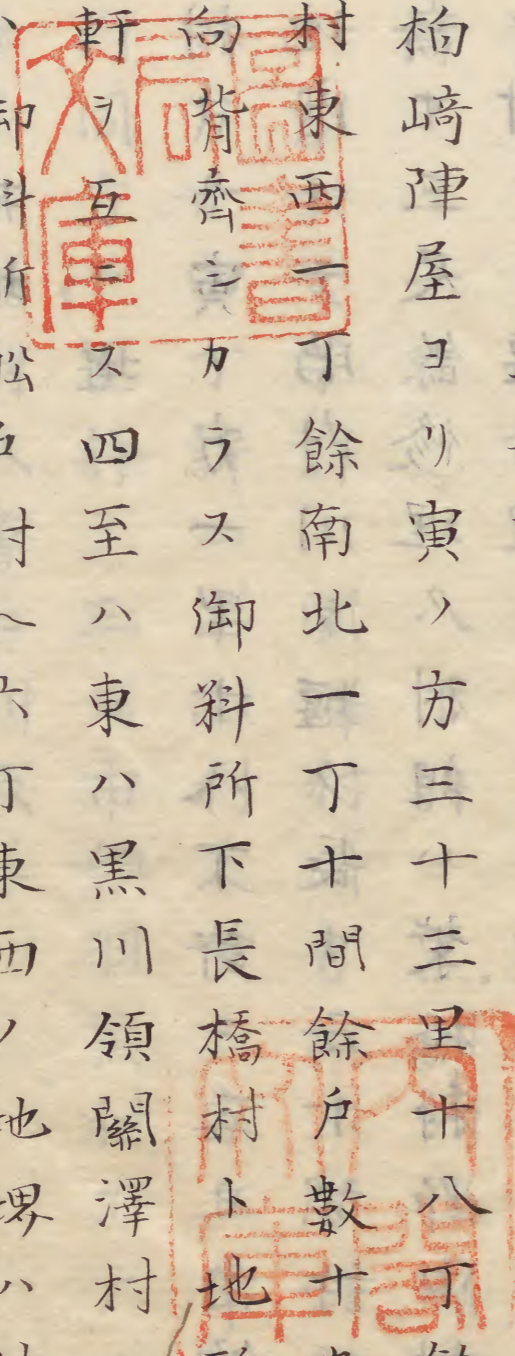 柏﨑陣屋ヨリ寅ノ方三十三里十八丁
村東西一丁餘南北一丁十間餘戸數十
向背齊シカラス御料所下長橋村ト地
軒ヲ互ニス四至ハ東ハ黒川領關澤村
御料所松戸村ヘ六丁東西ノ地堺ハ